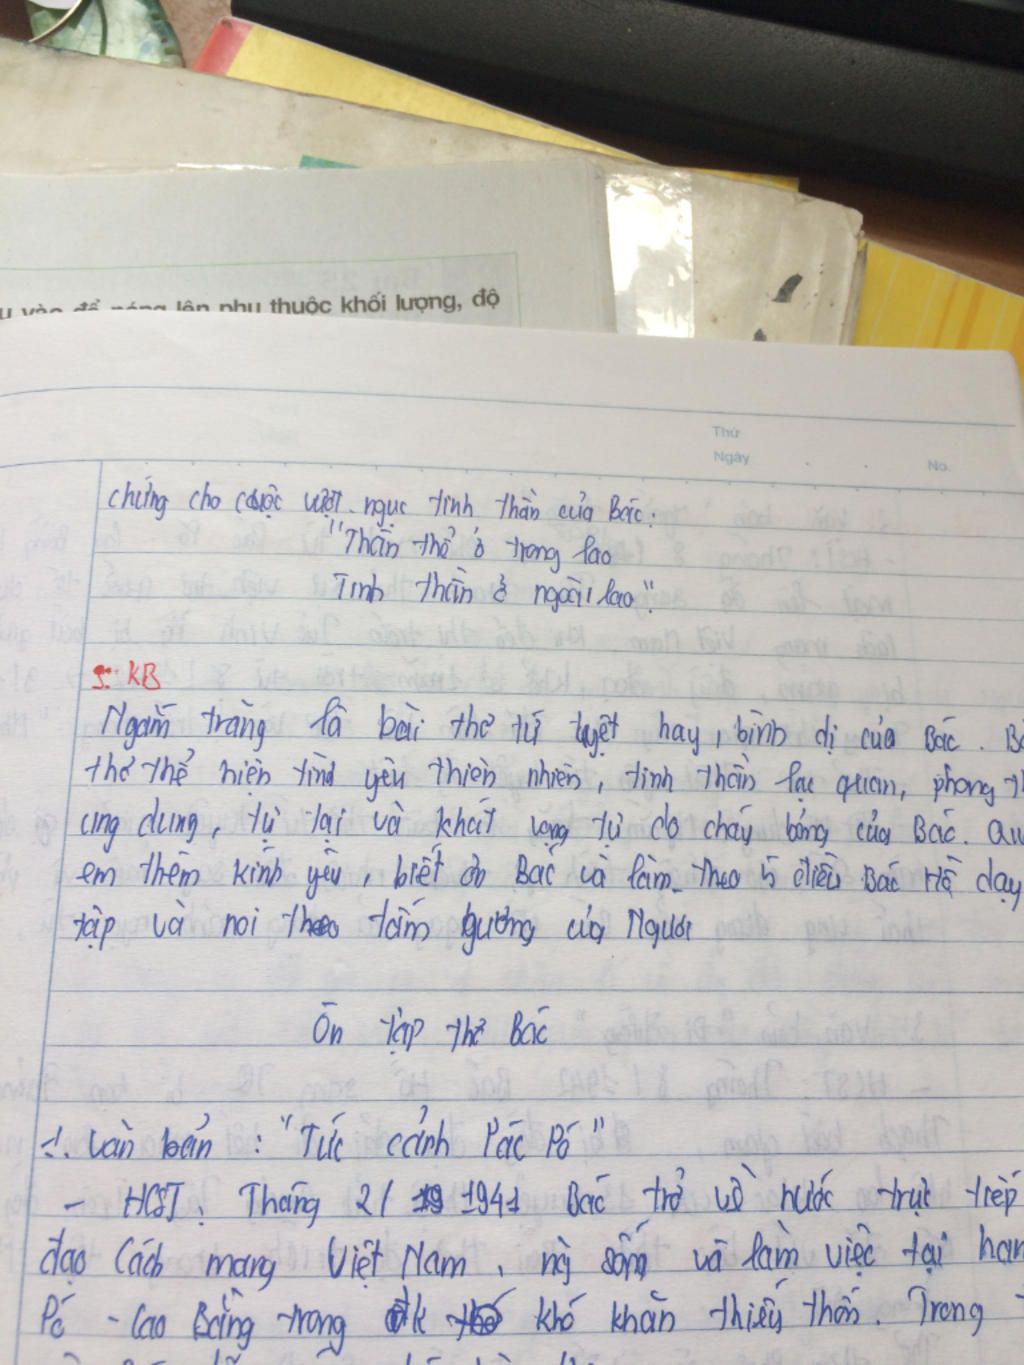 vào để nóng lên phụ thuộc khối lượng, độ
Thứ
Ngày
No.
chứng cho cuộc vượt ngục tinh thần của Bác:
"Thân thể ở trong lao
Tinh thần ở ngoài lao".
5. KB
Ngắm trăng là bài thơ tứ tuyệt hay, bình dị của Bác.
thơ thể hiện tình yêu thiên nhiên, tinh thần lạc quan, phong
ung dung, tự tại và khát vọng tự do cháy bỏng của Bác.
em thêm kính yêu, biết ơn Bác và làm theo 5 điều Bác Hồ dạy
tập và noi theo tấm gương của Người
Ôn tập thơ Bác
1. Văn bản : "Tức cảnh Pác Pó"
- HCST: Tháng 2/ 1941 Bác trở về nước trực tiếp
đạo Cách mạng Việt Nam, ng sống và làm việc tại han
Pó - Cao Bằng trong đk khó khăn thiếu thốn. Trong